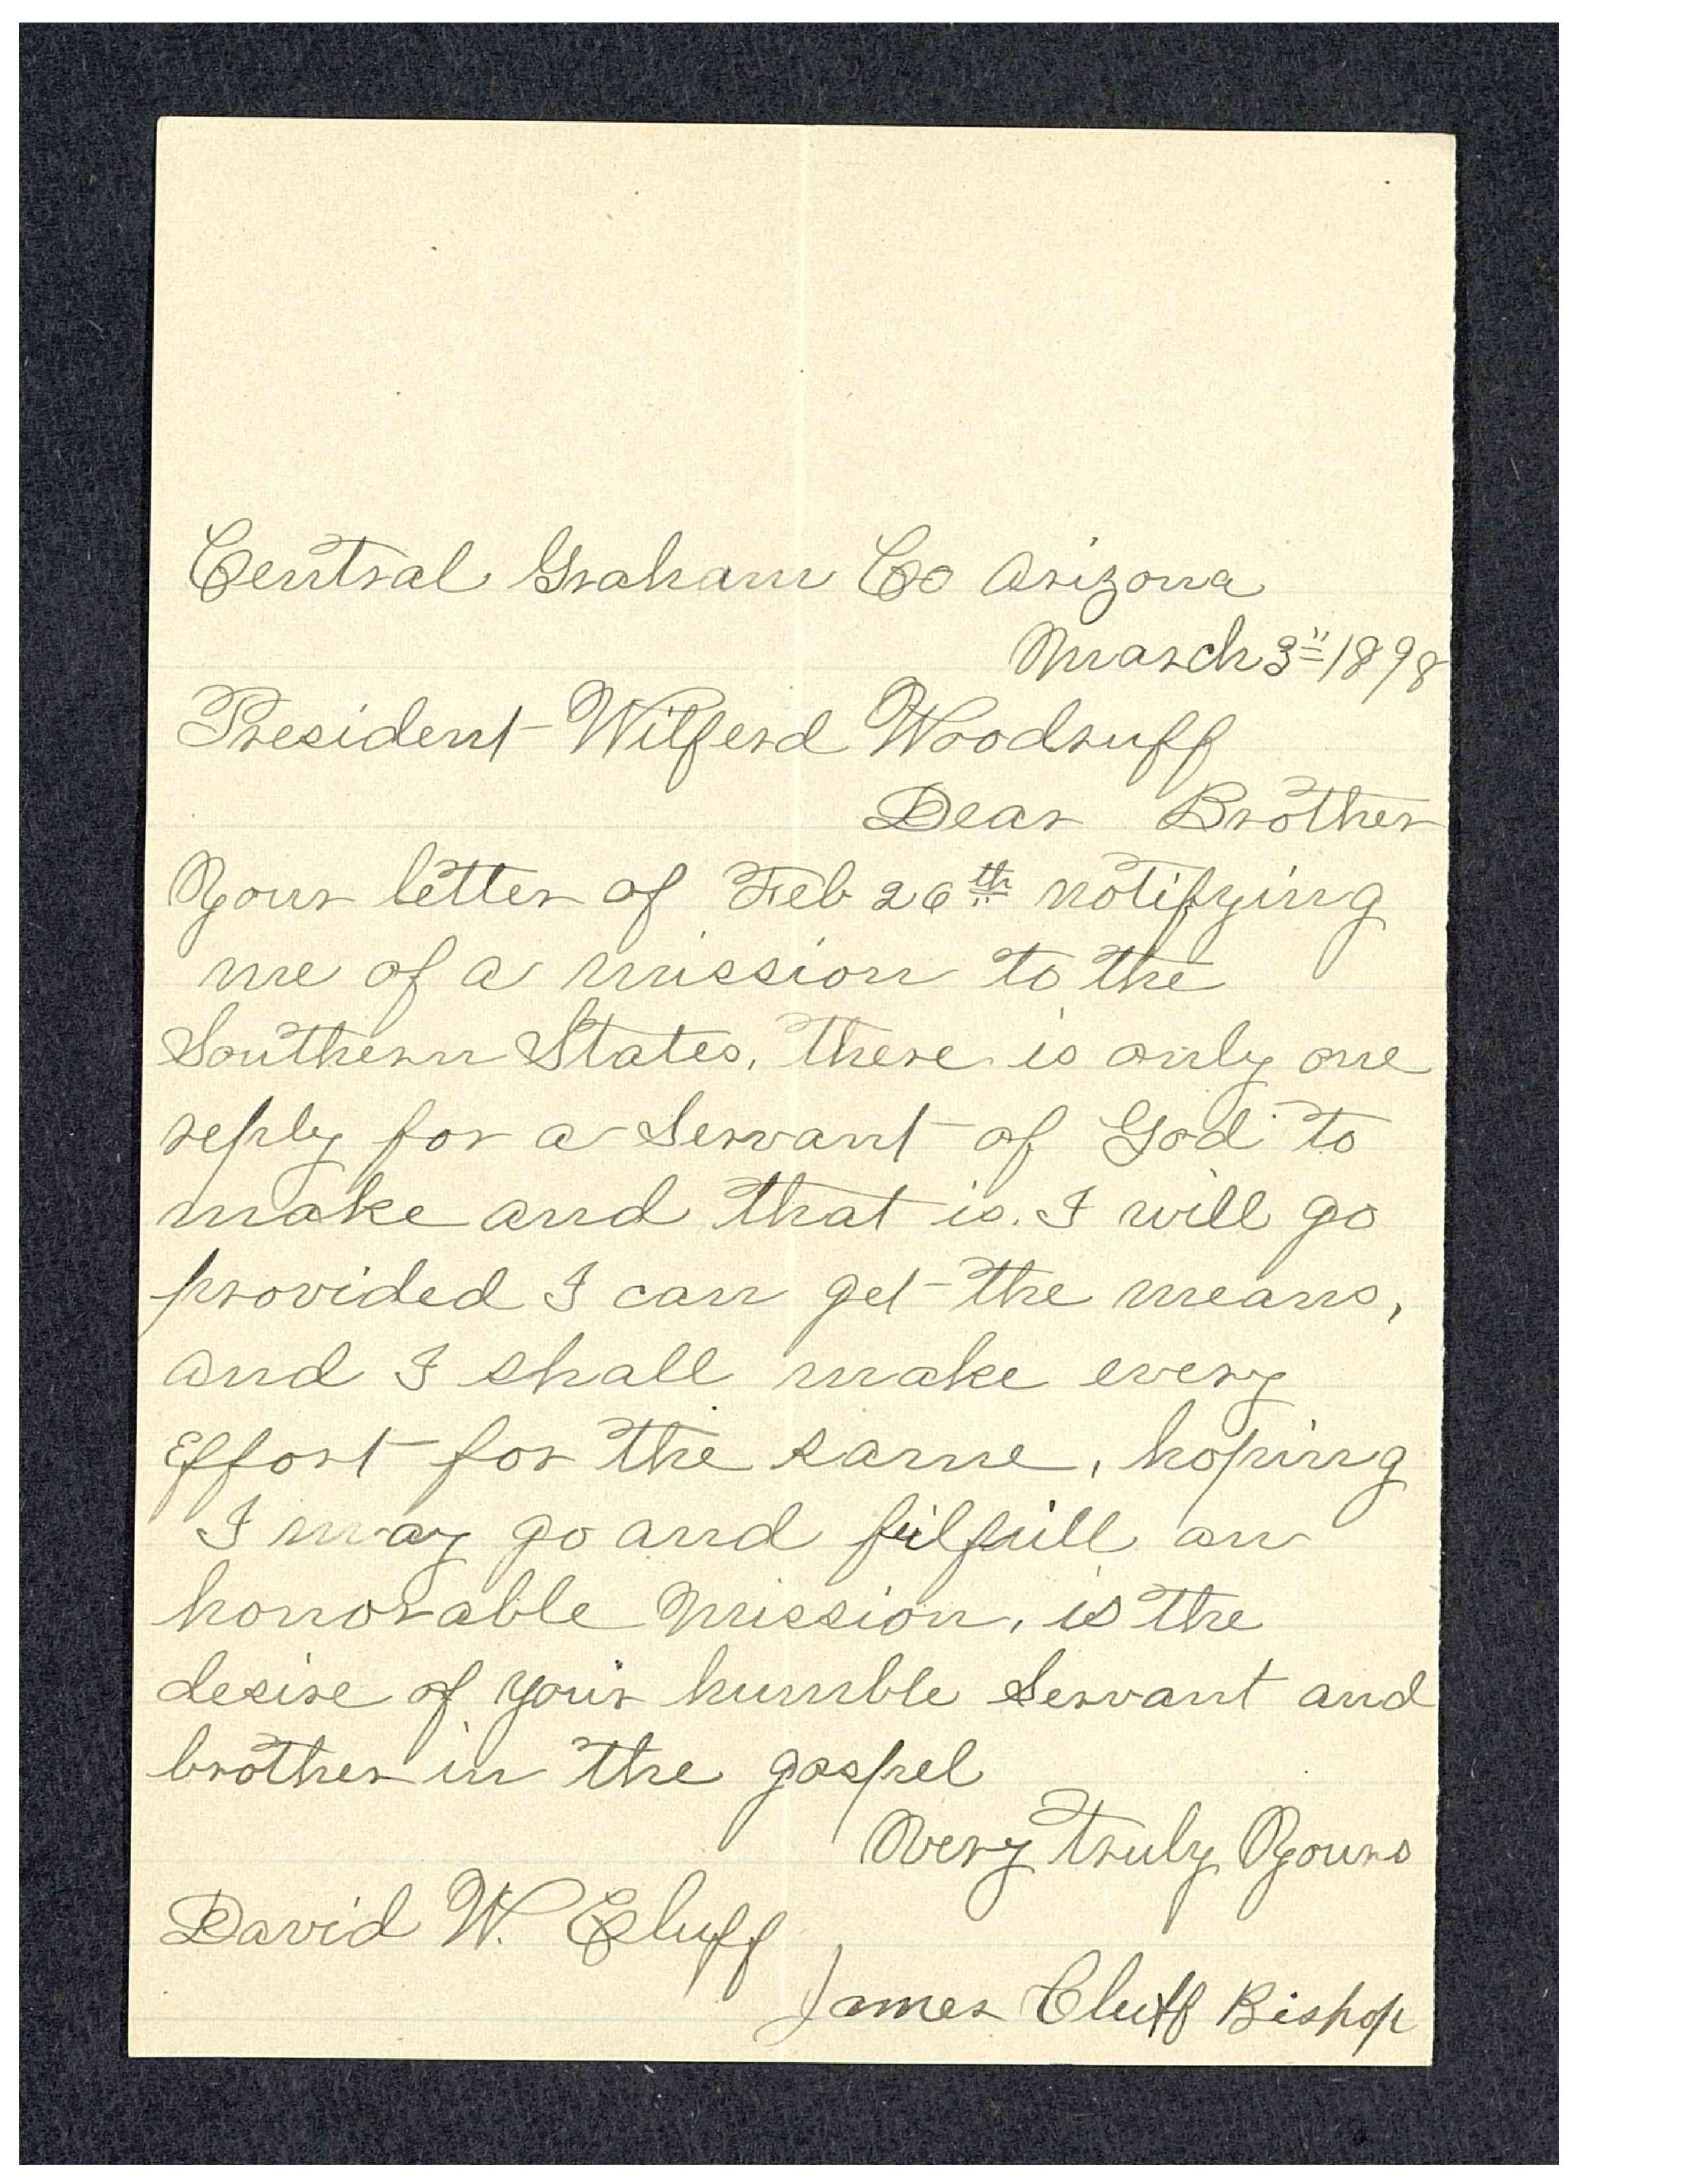 Central Graham Co Arizona
March 3" 1898
President Wilferd Woodruff
Dear Brother
Your letter of Feb 26th notifying
me of a mission to the
Southern States, there is only one
reply for a Servant of God to
make and that is. I will go
provided I can get the means,
and I shall make every
Effort for the same, hoping
I may go and fulfill an
honorable Mission, is the
desire of your humble Servant and
brother in the gospel
Very truly Yours
David W. Cluff
James Cluff Bishop